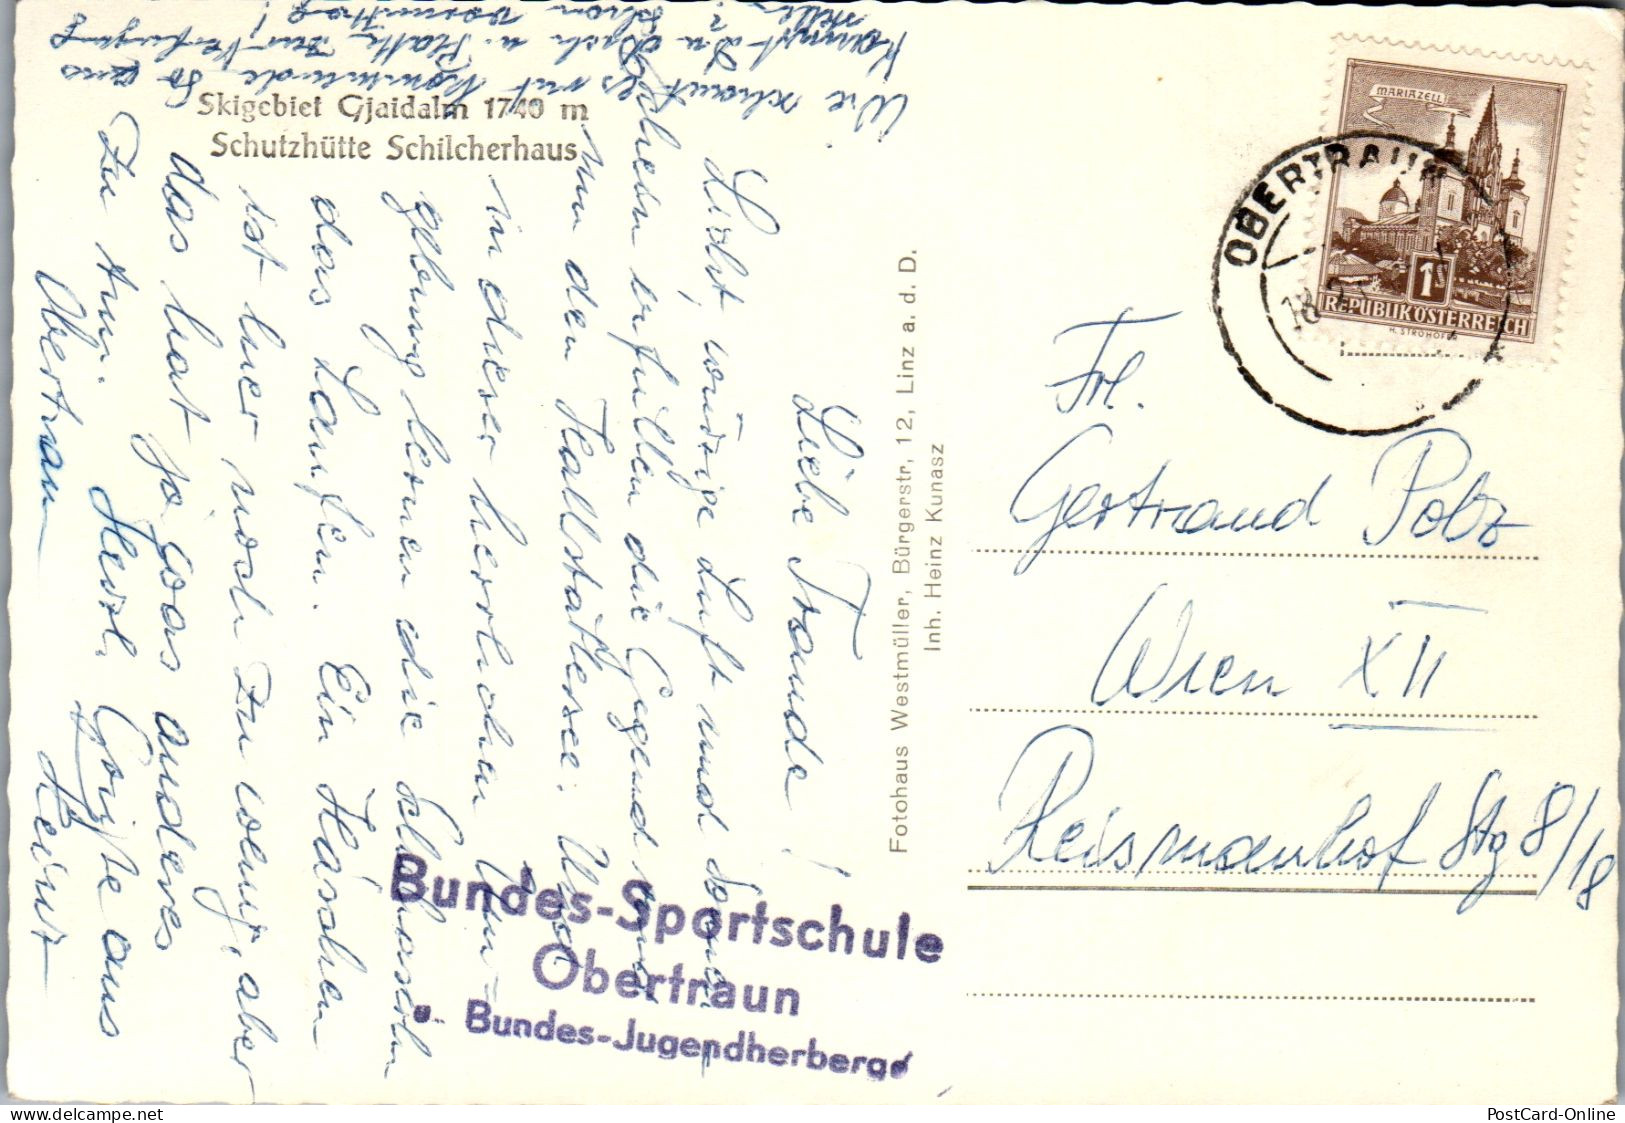 Skigebiet Gjaidalm 1740 m
Schutzhütte Schilcherhaus
Liebe Traude!
Licht, würzige Luft und Sonnen
schein erfüllen die Gegend rund
um den Hallstättersee. Uns
in dieser herrlichen Um-
gebung lernen die Schihaserln
das Laufen. Ein Häschen
ist hier noch zu wenig, aber
das hat ja was anderes
zu tun. Herzl. Grüße aus
Obertraun Heinz
Wie schaut es mit kommende
Kannst du
schon vormittag
stellen?
So uns
Fotohaus Westmüller, Bürgerstr. 12, Linz a. d. D.
Inh. Heinz Kunasz
Bundes-Sportschule
Obertraun
u. Bundes-Jugendherberge
MARIAZELL
1S
REPUBLIK ÖSTERREICH
H. STROHOFER
OBERTRAUN
18
Frl.
Gertraud Polz
Wien XII
Reismannhof Stg 8/18
PostCard-Online